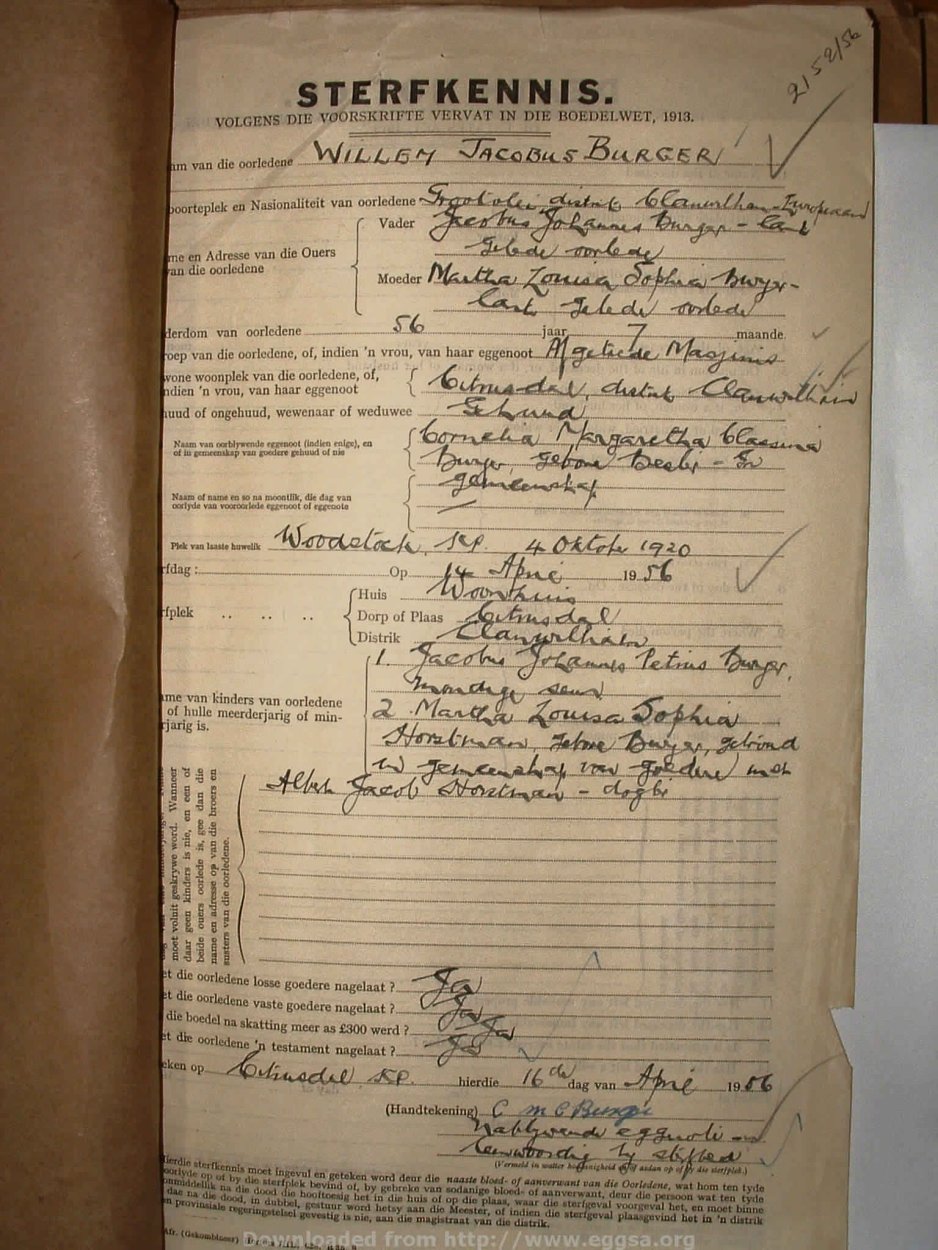 2152/56
STERFKENNIS.
VOLGENS DIE VOORSKRIFTE VERVAT IN DIE BOEDELWET, 1913.
am van die oorledene WILLEM JACOBUS BURGER
boorteplek en Nasionaliteit van oorledene Grootvlei, distrik Clanwilliam - Europeaan
me en Adresse van die Ouers
van die oorledene
Vader Jacobus Johannes Burger - laas
oorlede
Moeder Martha Louisa Sophia Burger -
laas oorlede
derdom van oorledene 56 jaar 7 maande.
roep van die oorledene, of, indien 'n vrou, van haar eggenoot Afgetrede Masjinis
wone woonplek van die oorledene, of,
ndien 'n vrou, van haar eggenoot
Citrusdal, distrik Clanwilliam
huud of ongehuud, wewenaar of weduwee Gehuud
Naam van oorblywende eggenoot (indien enige), en
of in gemeenskap van goedere gehuud of nie
Cornelia Margaretha Classina
Burger, gebore Bester - In
gemeenskap
Naam of name en so na moontlik, die dag van
oorlyde van vooroorlede eggenoot of eggenote
—
Plek van laaste huwelik Woodstock, K.P. 4 Oktober 1920
rfdag : Op 14 April 1956
rfplek .. .. ..
Huis Woonhuis
Dorp of Plaas Citrusdal
Distrik Clanwilliam
ame van kinders van oorledene
of hulle meerderjarig of min-
rjarig is.
1. Jacobus Johannes Petrus Burger,
mondige seun
2 Martha Louisa Sophia
Horstman, gebore Burger, getroud
in gemeenskap van goedere met
Albert Jacob Horstman - dogter
moet voluit geskrywe word. Wanneer
daar geen kinders is nie, en een of
beide ouers oorlede is, gee dan die
name en adresse op van die broers en
susters van die oorledene.
et die oorledene losse goedere nagelaat ? Ja
et die oorledene vaste goedere nagelaat ? Ja
die boedel na skatting meer as £300 werd ? Ja
et die oorledene 'n testament nagelaat ? Ja
eken op Citrusdal K.P. hierdie 16de dag van April 1956
(Handtekening) C M C Burger
Nablywende eggenote en
teenwoordig by sterfbed
(Vermeld in watter hoedanigheid of of aldan op of by die sterfplek.)
Hierdie sterfkennis moet ingevul en geteken word deur die naaste bloed- of aanverwant van die Oorledene, wat hom ten tyde
oorlyde op of by die sterfplek bevind of, by gebreke van sodanige bloed- of aanverwant, deur die persoon wat ten tyde
onmiddellik na die dood die hooftoesig het in die huis of op die plaas, waar die sterfgeval voorgeval het, en moet binne
dae na die dood, in dubbel, gestuur word hetsy aan die Meester, of indien die sterfgeval plaasgevind het in 'n distrik
n provinsiale regeringstelsel gevestig is nie, aan die magistraat van die distrik.
Afr. (Gekombineer)
Downloaded from http://www.eggsa.org